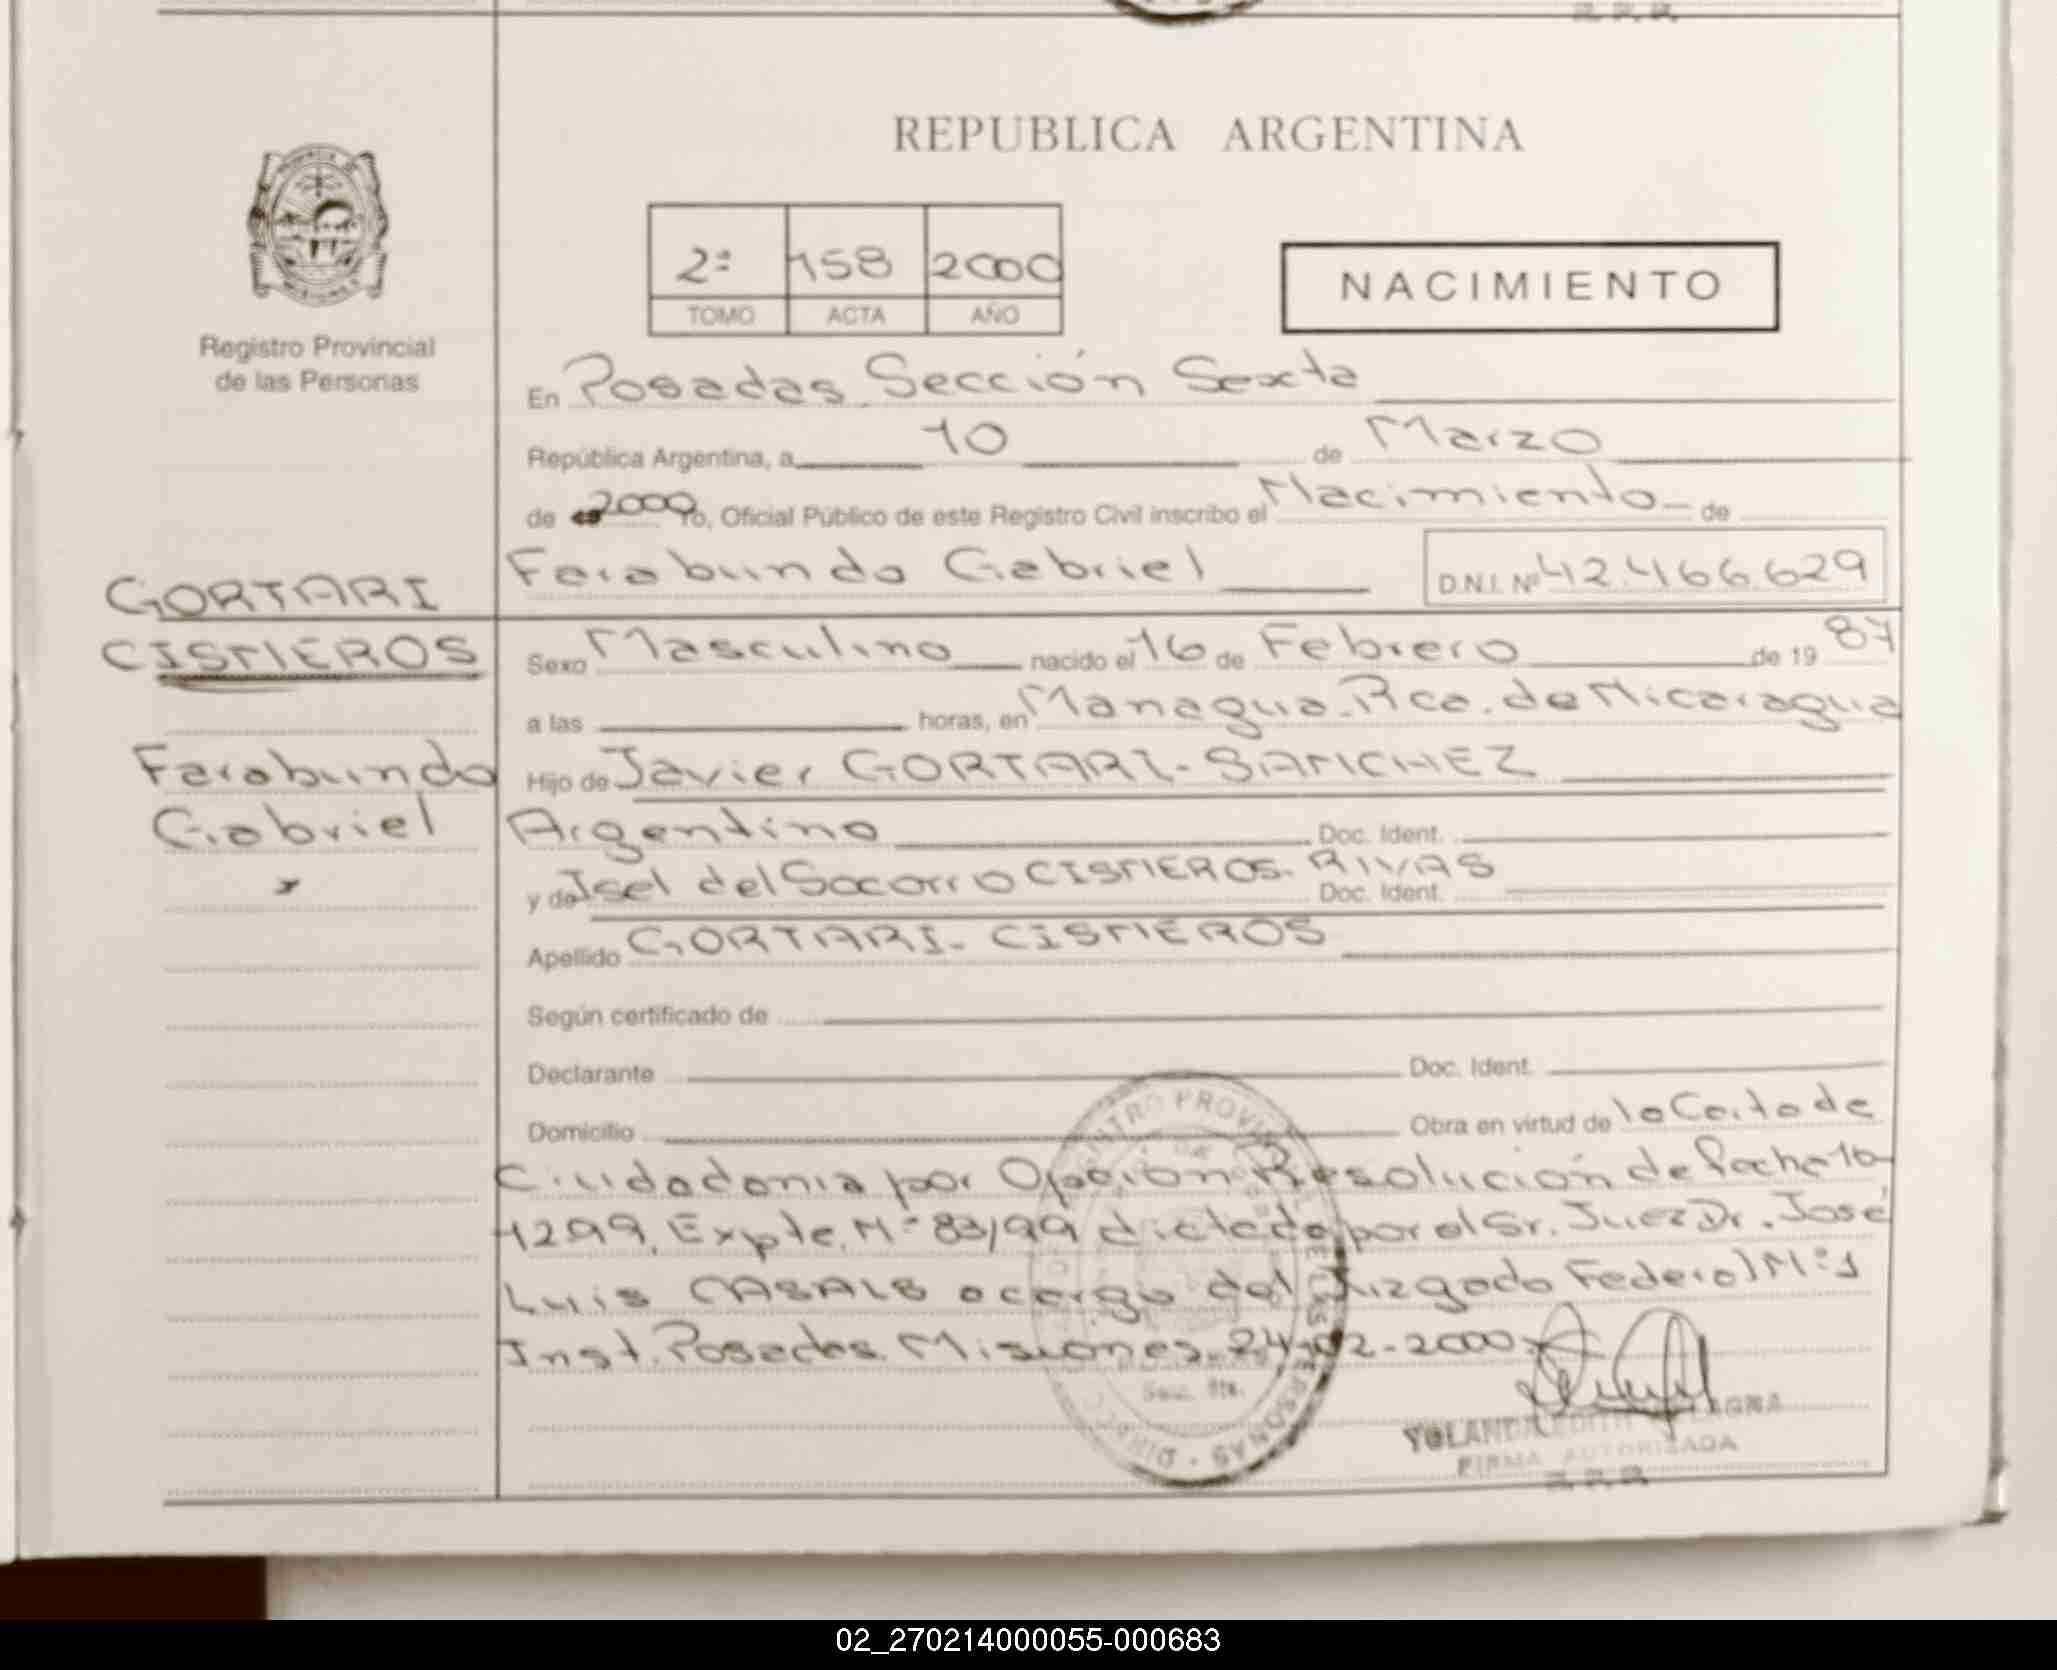 REPUBLICA ARGENTINA
2ª 158 2000
TOMO ACTA AÑO
NACIMIENTO
Registro Provincial
de las Personas
En Posadas Sección Sexta
República Argentina, a 10 de Marzo
de 2000 Yo, Oficial Público de este Registro Civil inscribo el Nacimiento de
Farabundo Gabriel D.N.I. Nº 42.466.629
GORTARI
CISNEROS
Farabundo
Gabriel
Sexo Masculino nacido el 16 de Febrero de 19 87
a las horas, en Managua. Rca. de Nicaragua
Hijo de Javier GORTARI- SANCHEZ
Argentino Doc. Ident.
y de Isel del Socorro CISNEROS- RIVAS Doc. Ident.
Apellido GORTARI- CISNEROS
Según certificado de
Declarante Doc. Ident.
Domicilio Obra en virtud de la Carta de
Ciudadania por Opción Resolución de fecha 10-
1299, Expte. Nº 83/99 dictada por el Sr. Juez Dr. José
Luis CASALS a cargo del Juzgado Federal Nº 1
Inst. Posadas Misiones, 24-02-2000
Secc. 6ta.
YOLANDA EDITH
FIRMA AUTORIZADA
R.P.P.
02_270214000055-000683